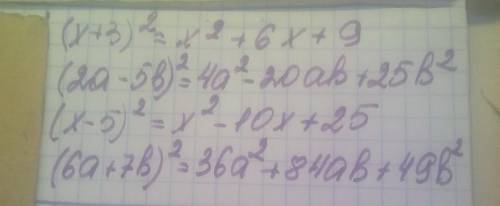 (x+3)² = x² + 6x + 9
(2a - 5b)² = 4a² - 20ab + 25b²
(x - 5)² = x² - 10x + 25
(6a + 7b)² = 36a² + 84ab + 49b²